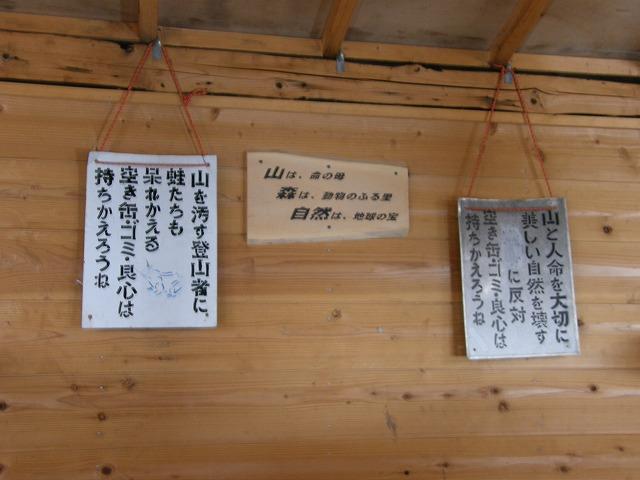 山を汚す登山者に、
蛙たちも
呆れかえる
空き缶・ゴミ・良心は
持ちかえろうね
山は、命の母
森は、動物のふる里
自然は、地球の宝
山と人命を大切に
美しい自然を壊す
に反対
空き缶・ゴミ・良心は
持ちかえろうね